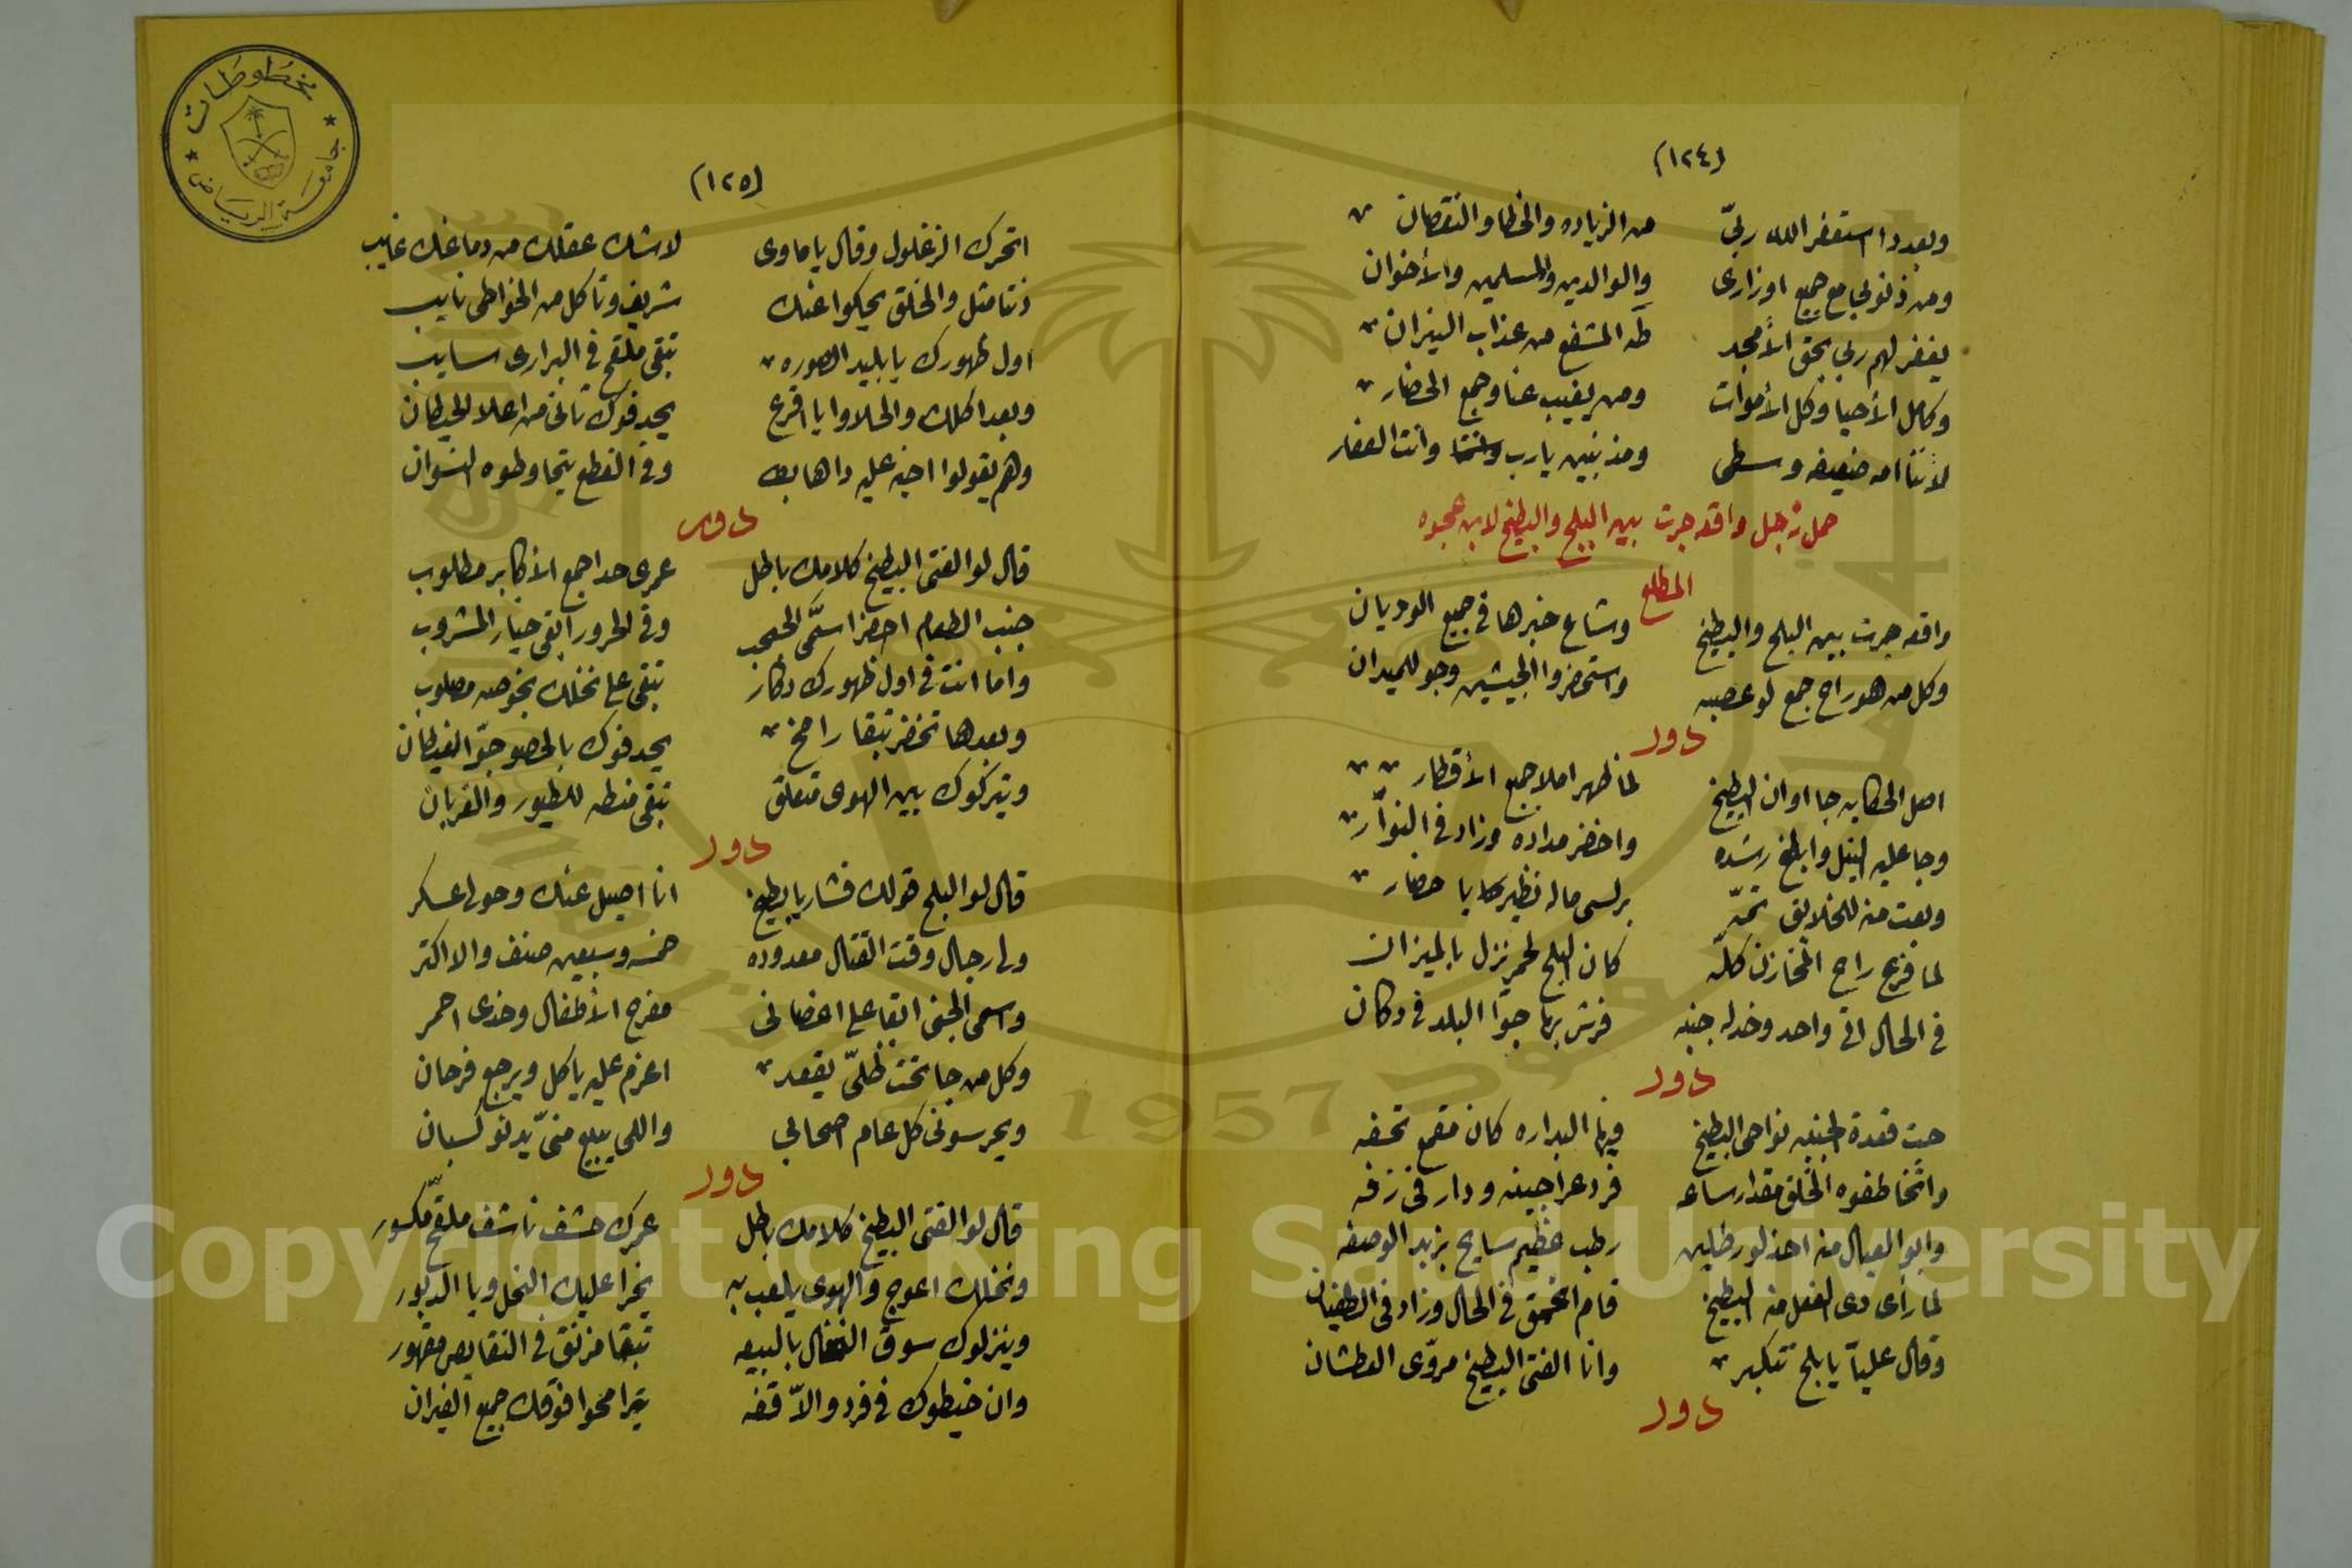 (١٢٤)
وبعد دا استغفر الله ربّي من الزياده والخطا والنقصان
ومن ذنوبي مع جميع اوزارى والوالدين والمسلمين والأخوان
يغفر لهم ربي بحق الأمجد طه المشفع من عذاب النيران
وكامل الأحيا وكل الأموات ومن يغيب عنا وجمع الحضار
لأننا امه ضعيفه وسطى ومذنبين يارب وانت الغفار
حمل زجل واقعه جرت بين البلح والبطيخ لابن عجوه
المطلع
واقعه جرت بين البلح والبطيخ وشاع خبرها في جميع الوديان
وكل من هو راح جمع لو عصبه واستحضروا الجيشين وجو للميدان
دور
اصل الحكايه جا اوان البطيخ لما ظهر املا جميع الأقطار
وجا عليه النيل وابلغ رشده واخضر مداده وزاد في النوّار
وبعت منه للخلايق برلسى ماله نظير يا حضار
لما فزع راح المخازن كلّه كان البلح لحمر نزل بالميزان
في الحال اتى واحد وخد له جنبه فرش بها جوّا البلد في دكان
دور
جت قعدة الجنينه نواحى البطيخ فيها البداره كان مقمع تحفه
واتخاطفوه الخلق مقدار ساعه فرد عراجينه ودار في زفه
وابو العيال منه اخد لو رطلين رطب عظيم سايح يزيد الوصفه
لما رأى دى الفعل منه البطيخ قام اتحمق في الحال وزاد في الطغيان
وقال عليّا يا بلح تتكبر وانا الفتى البطيخ مروّى العطشان
دور
(١٢٥)
اتحرك الزغلول وقال يا ماوى لاشك عقلك من دماغك غايب
دنتا مثل والخلق يحكوا عنك شريف وتاكل من الخواطى نايب
اول ظهورك يا بليد الصوره تبقى ملقح في البرارى سايب
وبعد اكلك والحلاوا يا اقرع يحدفوك تانى من اعلا الحيطان
وهم يقولوا اخيه عليه داها بط وفي القطع يتحاوطوه النسوان
دور
قال لو الفتى البطيخ كلامك باطل عمرى حدا جمع الأكابر مطلوب
جنب الطعام احضر اسمّى الحبحب وفي الحرور ابقى خيار المشروب
واما انت في اول ظهورك دكار تبقى على نخلك بخوصه مصلوب
وبعدها تخضر تبقا رامخ يحدفوك بالحصو جوّا الغيطان
ويتركوك بين الهوى متعلق تبقى منطه للطيور والغربان
دور
قال لو البلح قولك فشار يا بطيخ انا اصيل عنك وحولى عسكر
ولى رجال وقت القتال معدوده خمسه وسبعين صنف والا اكتر
واسمى الجنى ابقا على اغصانى مفرح الأطفال وخدى احمر
وكل من جا تحت ظلّى يقعد اعزم عليه ياكل ويرجع فرحان
ويحرسونى كل عام اصحابى واللى يبيع منىّ يدنو كسبان
دور
قال لو الفتى البطيخ كلامك باطل عمرك حشف ناشف ملقح مكسور
ونخلك اعوج والهوى يلعب به يخرا عليك النحل ويا الدبور
وينزلوك سوق بالبيعه تبقا مزنق في النقايص مقهور
وان خيطوك في فرد والاّ قفه يترامحوا فوقك جميع الفيران